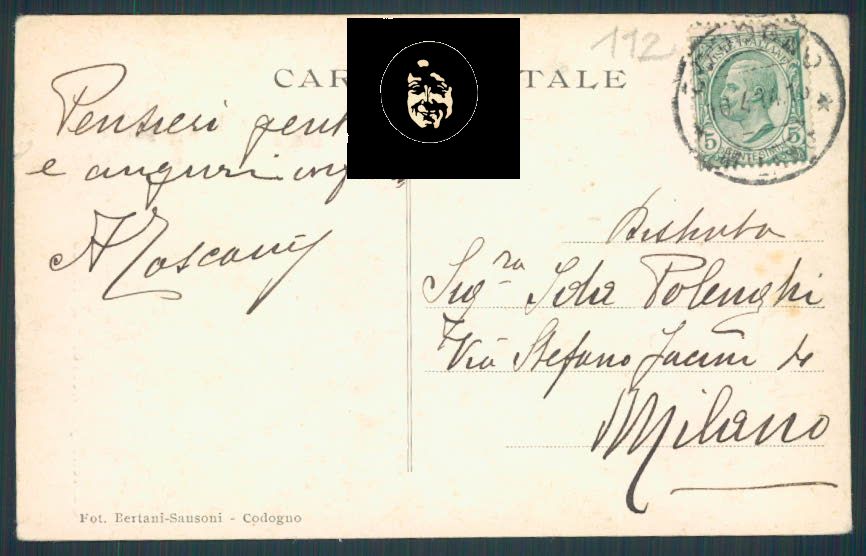 112
CAR TALE
Pensieri gent
e auguri
A Toscani
5 5
CENTESIMI
Distinta
Sig.ra Ida Polenghi
Via Stefano Jacini 4
Milano
Fot. Bertani-Sausoni - Codogno